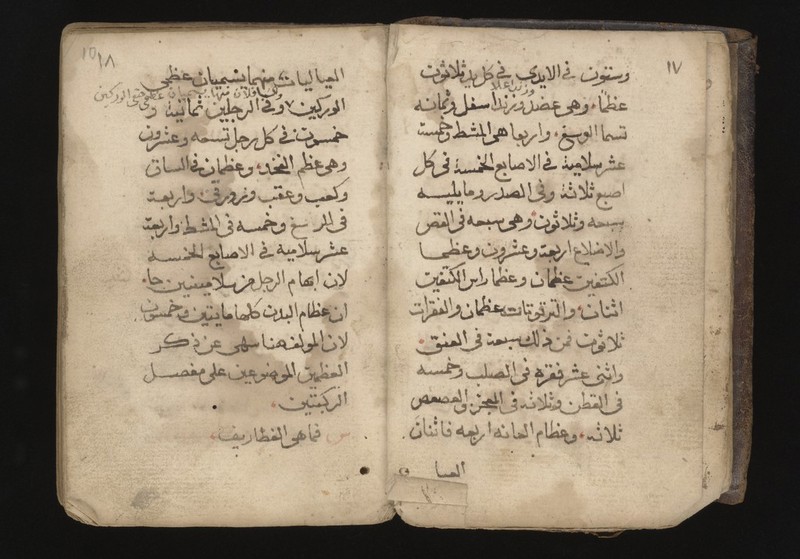 ١٧
وستون في الايدي في كل يد ثلاثون
وزند اعلا
عظما وهي عضد وزند اسفل وثمانه
تسما الرسغ واربعا هي المشط وخمست
عشر سلامية في الاصابع الخمسة في كل
اصبع ثلاثة وفي الصدر وما يليه
سبعه وثلاثون وهي سبعه في القص
والاضلاع اربعة وعشرون وعظما
الكتفين عظمان وعظما راس الكتفين
اثنان والترقوتان عظمان والفقرات
ثلاثون فمن ذلك سبعة في العنق
واثنى عشر فقره في الصلب وخمسه
في القطن وثلاثه في العجز وفي العصعص
ثلاثه وعظام العانه اربعه فاثنان
العيا
١٨
العياليات منهما يسميان عظمي
الوركين وفي الرجلين ثمانية و
خمسون في كل رجل تسعه وعشرون
وهي عظم الفخد وعظمان في الساق
وكعب وعقب وزورقي واربعة
في الرسغ وخمسه في المشط واربعة
عشر سلامية في الاصابع الخمسه
لان ابهام الرجل من سلاميتين جا
ان عظام البدن كلها مايتين وخمسون
لان المولف هنا سهى عن ذكر
العظمين الموضوعين على مفصل
الركبتين
س فما هي الغظاريف